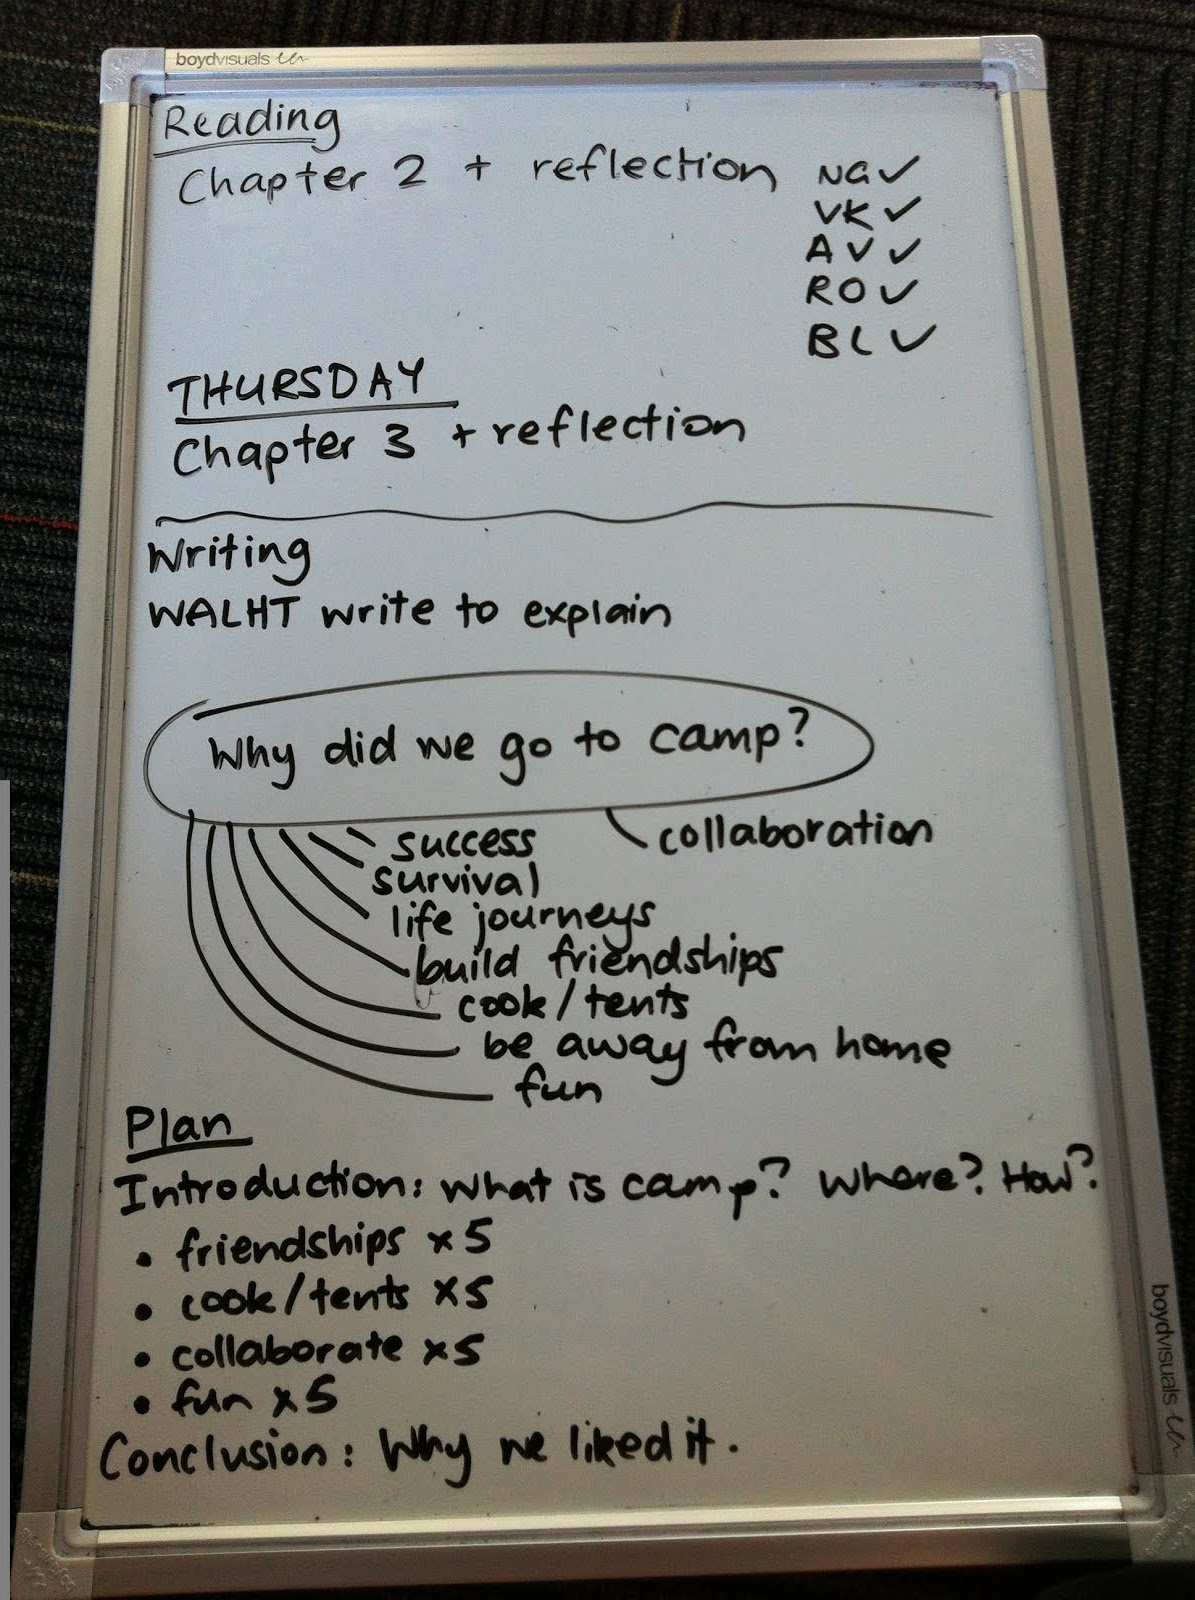 boydvisuals
Reading
Chapter 2 + reflection
NG ✓
VK ✓
AV ✓
RO ✓
BL ✓
THURSDAY
Chapter 3 + reflection
Writing
WALHT write to explain
Why did we go to camp?
success
collaboration
survival
life journeys
build friendships
cook/tents
be away from home
fun
Plan
Introduction: What is camp? Where? How?
• friendships x5
• cook/tents x5
• collaborate x5
• fun x5
Conclusion: Why we liked it.
boydvisuals